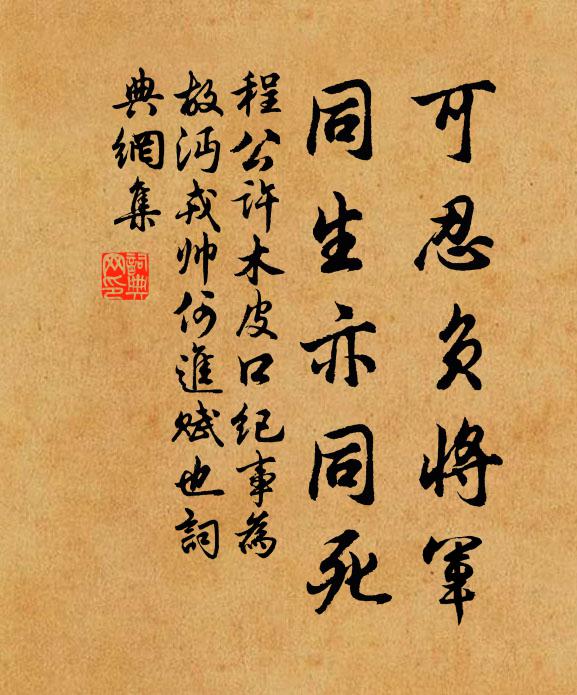 可忍负将军
同生亦同死
程公许木皮口纪事为
故沔戎帅何进赋也词
典网集
词典
网印